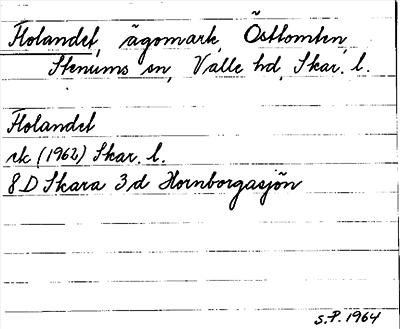 Flolandet, ägomark, Östtomten,
Stenums sn, Valle hd, Skar. l.
Flolandet
rk (1962) Skar. l.
8 D Skara 3 d Hornborgasjön
S.P. 1964